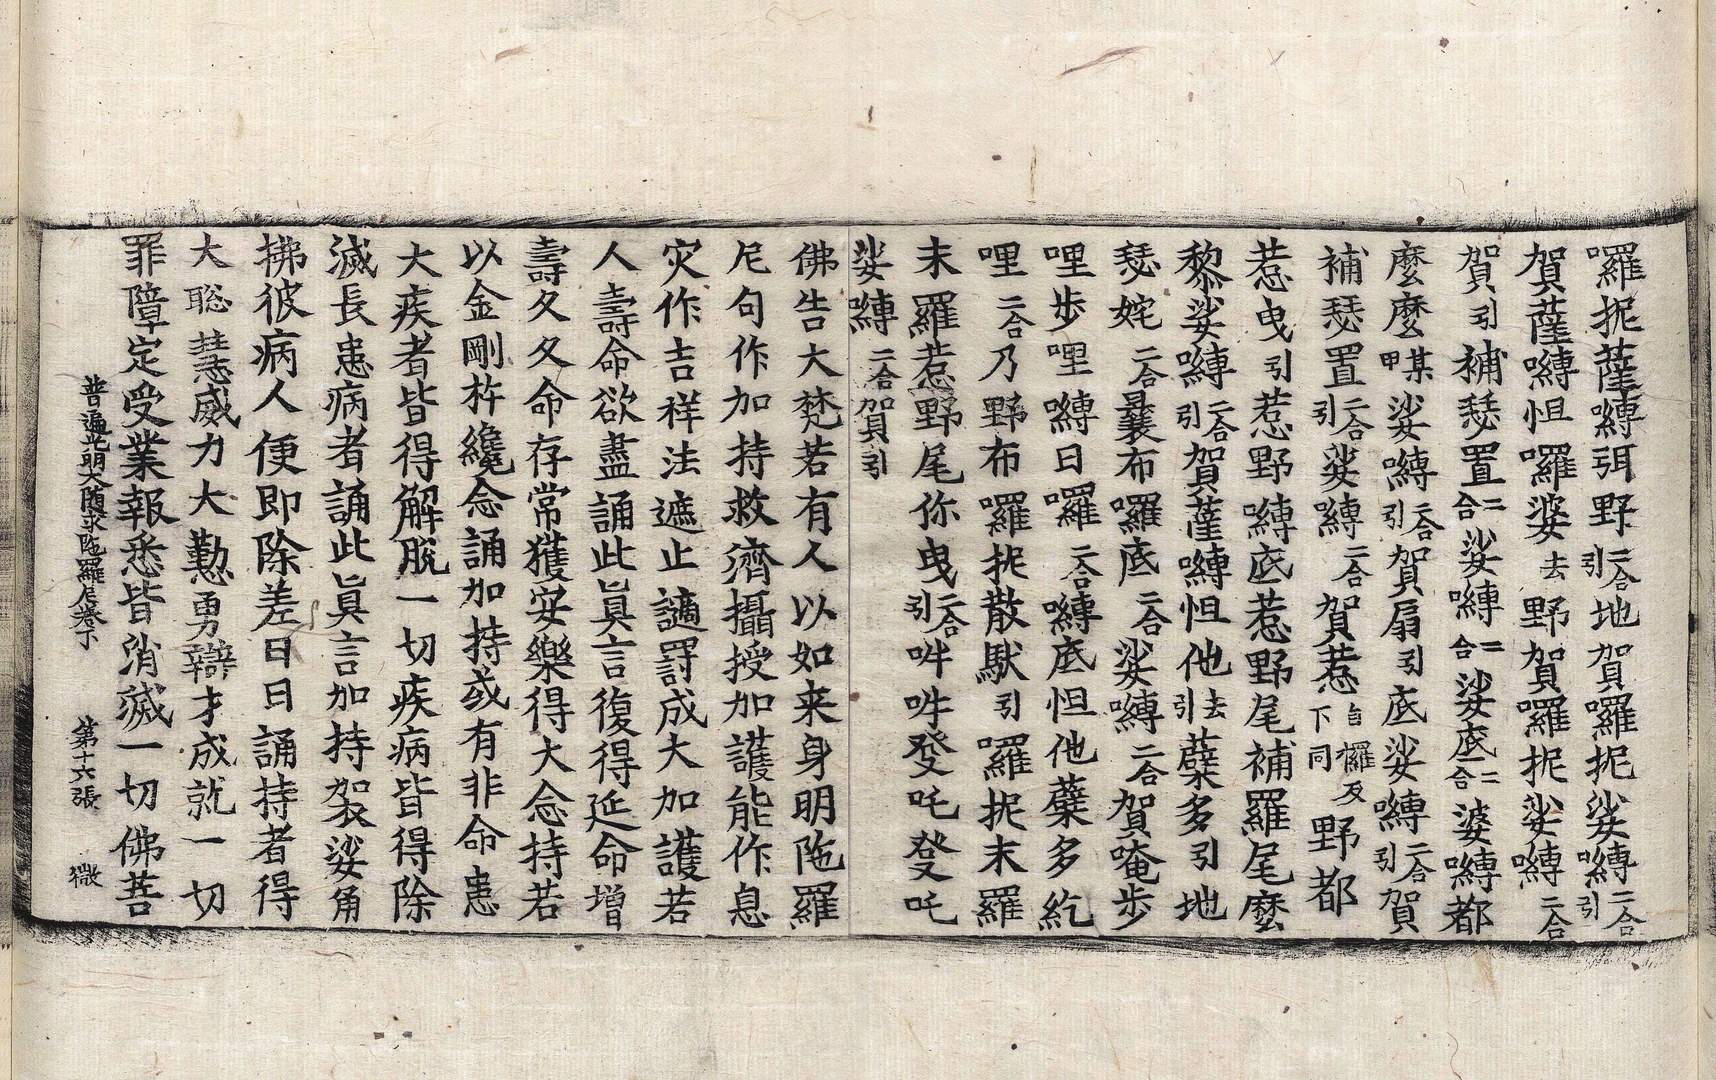 囉抳薩嚩弭野二合引地賀囉抳娑嚩二合引
賀薩嚩怛囉婆去野賀囉抳娑嚩二合
賀引補瑟置二合娑嚩二合娑底二合婆嚩都
麼麼某甲娑嚩二合引賀扇引底娑嚩二合引賀
補瑟置二合引娑嚩二合賀惹自欏反下同野都
惹曳引惹野嚩底惹野尾補羅尾麼
黎娑嚩二合引賀薩嚩怛他去引蘖多引地
瑟姹二合曩布囉底二合娑嚩二合賀唵步
哩步哩嚩日囉二合嚩底怛他蘖多紇
哩二合乃野布囉抳散馱引囉抳末羅
末羅惹野尾你曳二合引吽吽發吒發吒
娑嚩二合賀引
佛告大梵若有人以如来身明陁羅
尼句作加持救濟攝授加護能作息
灾作吉祥法遮止讁罸成大加護若
人壽命欲盡誦此真言復得延命增
壽久久命存常獲安樂得大念持若
以金剛杵纔念誦加持或有非命患
大疾者皆得解脫一切疾病皆得除
滅長患病者誦此真言加持袈裟角
拂彼病人便即除差日日誦持者得
大聡慧威力大勤勇辯才成就一切
罪障定受業報悉皆消滅一切佛菩
普遍光明大隨求陁羅尼卷下　第十六張　微